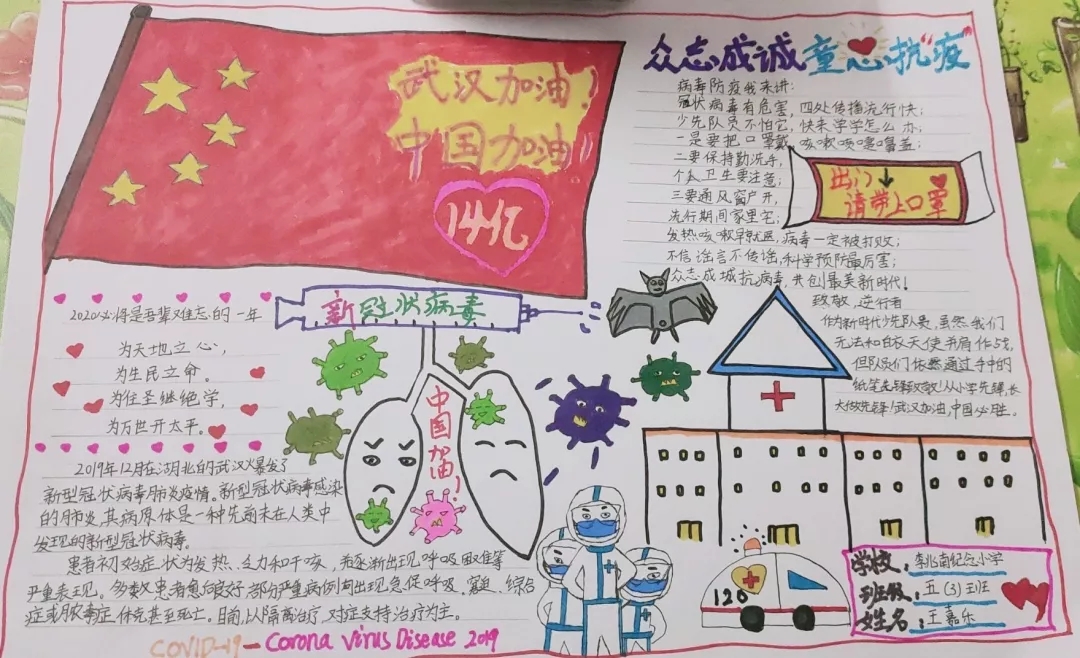 武汉加油！
中国加油！
14亿
众志成诚 童心抗“疫”
病毒防疫我来讲：
冠状病毒有危害，四处传播流行快；
少先队员不怕它，快来学学怎么办；
一是要把口罩戴，咳嗽咳嚏噜盖；
二要保持勤洗手，
个人卫生要注意；
三要通风窗户开，
流行期间家里宅；
发热咳嗽早就医，病毒一定被打败；
不信谣言不传谣，科学预防最厉害；
众志成城抗病毒，共创最美新时代！
致敬，逆行者
出门↓
请带上口罩
作为新时代少先队员，虽然我们
无法和白衣天使并肩作战，
但队员们依然通过手中的
纸笔先锋致敬！从小学先锋，长
大做先锋！武汉加油，中国必胜。
2020必将是吾辈难忘的一年
为天地立心，
为生民立命。
为往圣继绝学，
为万世开太平。
新冠状病毒
中国加油！
2019年12月在湖北的武汉爆发了
新型冠状病毒肺炎疫情。新型冠状病毒感染
的肺炎，其病原体是一种先前未在人类中
发现的新型冠状病毒。
患者初始症状为发热、乏力和干咳，并逐渐出现呼吸困难等
严重表现。多数患者愈向良好，部分严重病例可出现急促呼吸、窘迫、综合
症或脓毒症，休克甚至死亡。目前，以隔离治疗，对症支持治疗为主。
COVID-19—Corona Virus Disease 2019
120
学校：李北南纪念小学
班级：五（3）班
姓名：王嘉乐